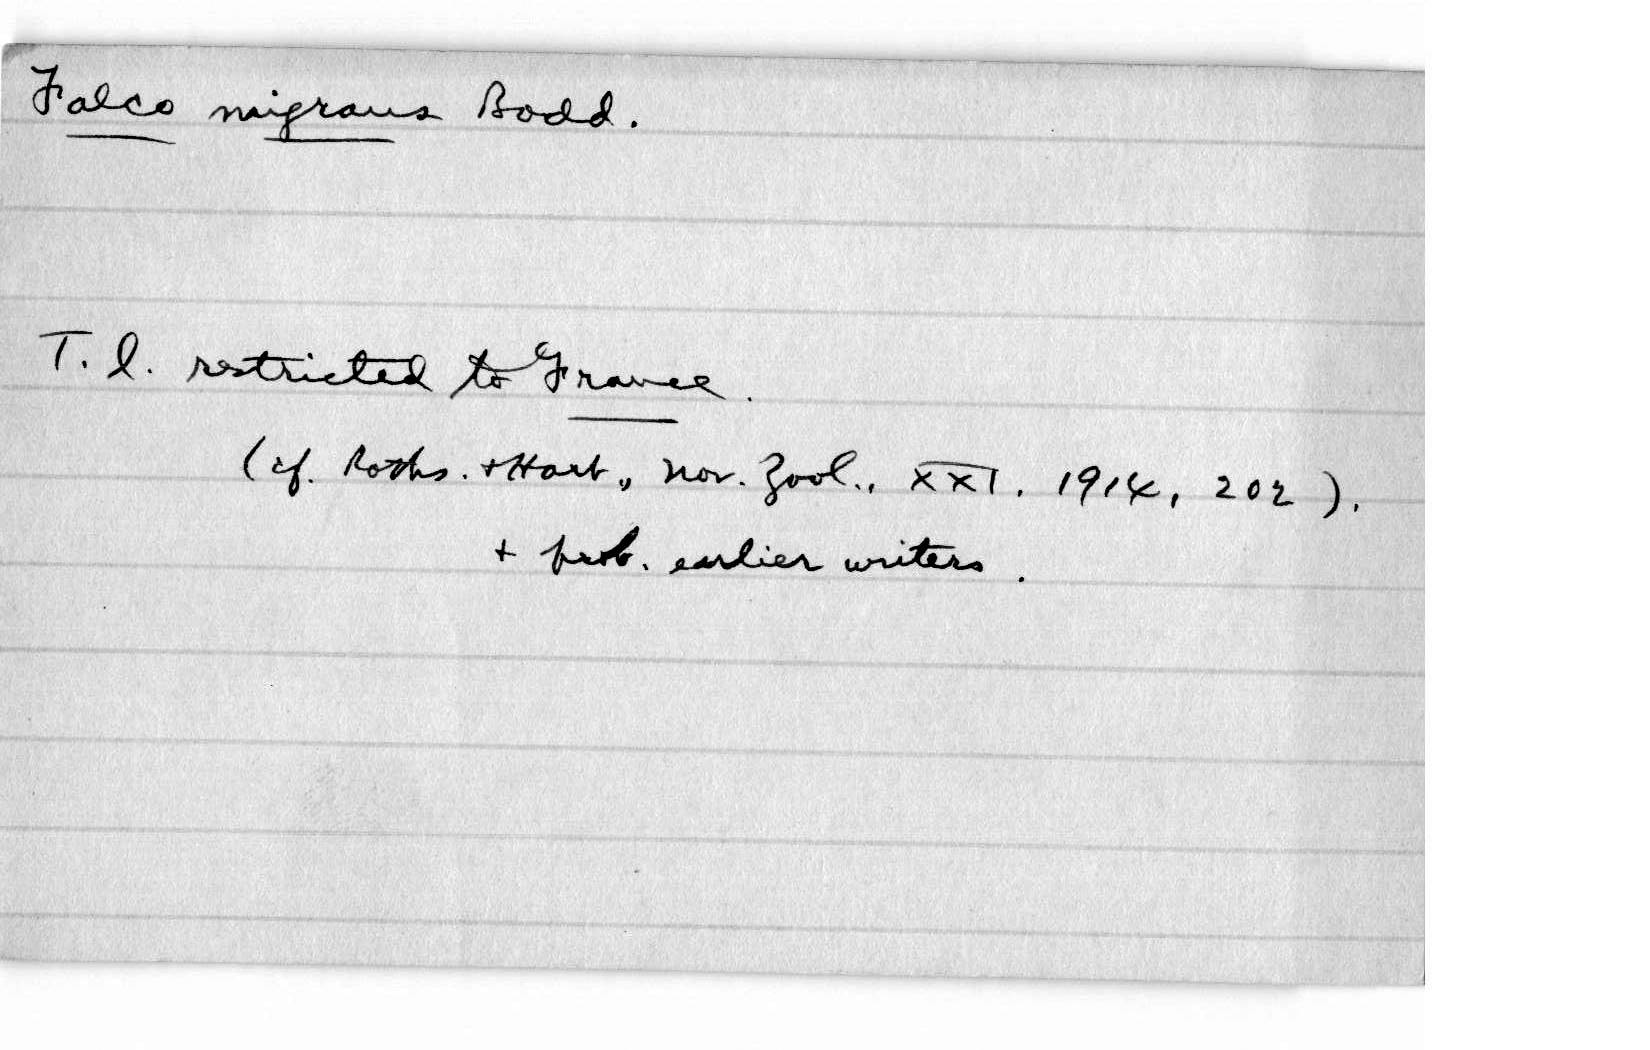 Falco migrans Bodd.
T. l. restricted to France.
(cf. Roths. + Hart., Nov. Zool., XXI. 1914, 202).
+ prob. earlier writers.